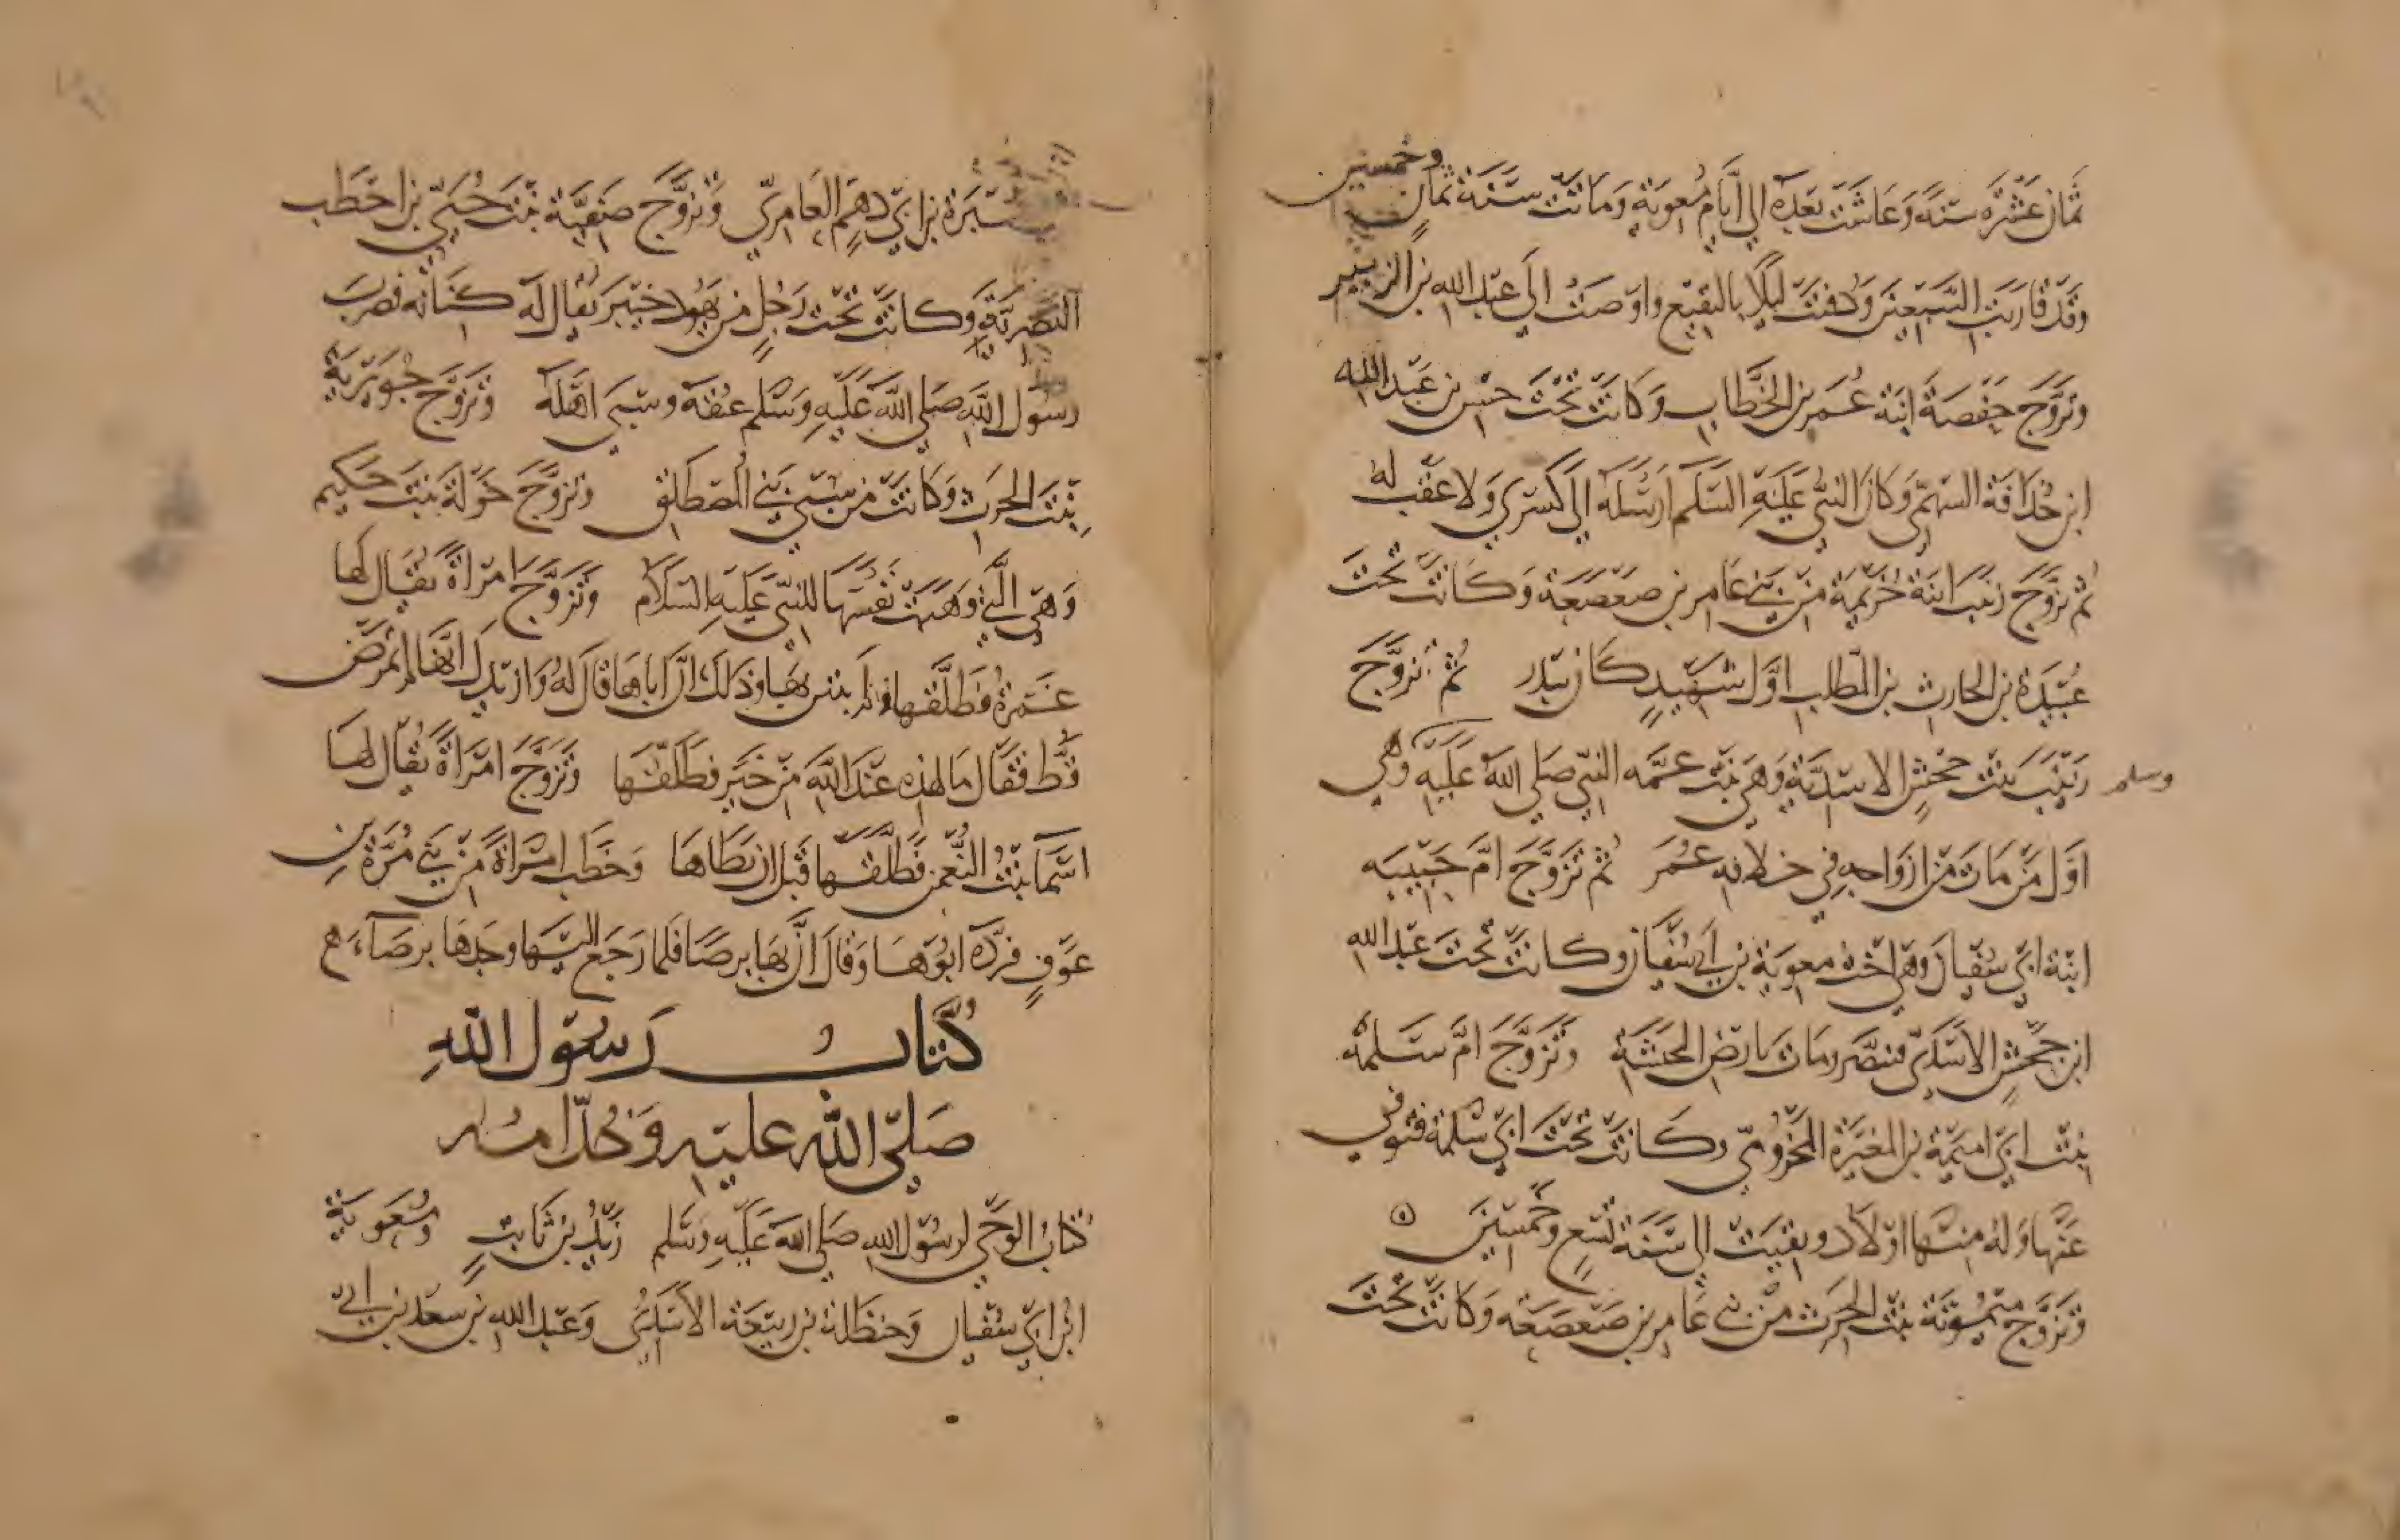 ثمان عشرة سنة وعاشت بعده الى ايام معوية وماتت سنة ثمان وخمسين
وقد قاربت السبعين ودفنت ليلا بالبقيع واوصت الى عبد الله بن الزبير
وتزوج حفصة ابنة عمر بن الخطاب وكانت تحت خنيس بن عبد الله
ابن حذافة السهمي وكان النبي عليه السلم ارسله الى كسرى ولا عقب له
ثم تزوج زينب ابنة خزيمة من بني عامر بن صعصعة وكانت تحت
عبيدة بن الحارث بن المطلب اول شهيد كان ببدر ثم تزوج
زينب بنت جحش الاسدية وهي بنت عمه النبي صلى الله عليه وسلم وهي
اول من مات من ازواجه في خلافه عمر ثم تزوج ام حبيبه
ابنة ابي سفيان وهي اخت معوية بن ابي سفيان وكانت تحت عبد الله
ابن جحش الاسدي فتنصر ومات بارض الحبشة وتزوج ام سلمة
بنت ابي امية بن المغيرة المخزومي وكانت تحت ابي سلمة فتوفي
عنها وله منها اولاد وبقيت الى سنة تسع وخمسين
وتزوج ميمونة بنت الحرث من بني عامر بن صعصعه وكانت تحت
سبرة بن ابي دهم العامري وتزوج صفية بنت حيي بن اخطب
النضرية وكانت تحت رجل من يهود خيبر يقال له كنانه فضرب
رسول الله صلى الله عليه وسلم عنقه وسبى اهله وتزوج جويرية
بنت الحرث وكانت من سبي بني المصطلق وتزوج خولة بنت حكيم
وهي التي وهبت نفسها للنبي عليه السلام وتزوج امراة يقال لها
عمرة فطلقها ولم يبن بها وذلك ان اباها قال له وازيدك انها لم تمرض
قط فقال ما لهذه عند الله من خير فطلقها وتزوج امراة يقال لها
اسما بنت النعمن فطلقها قبل ان يطاها وخطب امراة من بني مرة بن
عوف فرده ابوها وقال ان بها برصا فلما رجع اليها وجدها برصاء
كتاب رسول الله
صلى الله عليه وخدامه
كتاب الوحي لرسول الله صلى الله عليه وسلم زيد بن ثابت ومعوية
ابن ابي سفيان وحنظلة بن ربيعة الاسدي وعبد الله بن سعد بن ابي